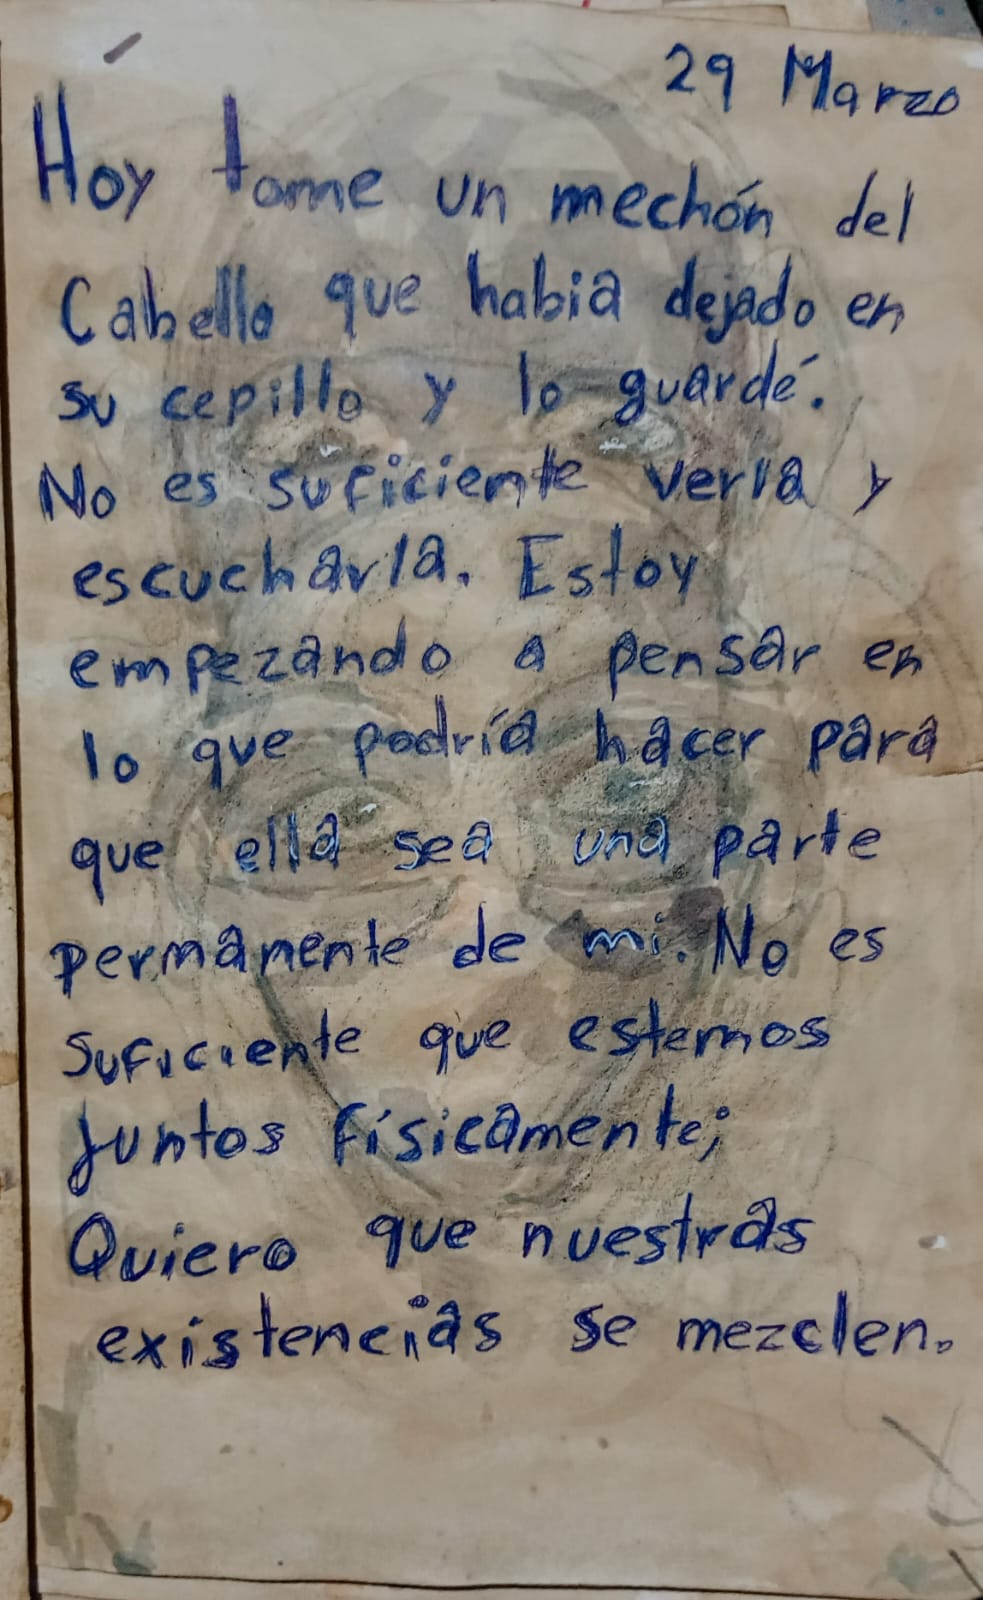 29 Marzo
Hoy tome un mechón del
Cabello que habia dejado en
su cepillo y lo guardé.
No es suficiente verla y
escucharla. Estoy
empezando a pensar en
lo que podría hacer para
que ella sea una parte
permanente de mi. No es
suficiente que estemos
juntos físicamente;
Quiero que nuestras
existencias se mezclen.